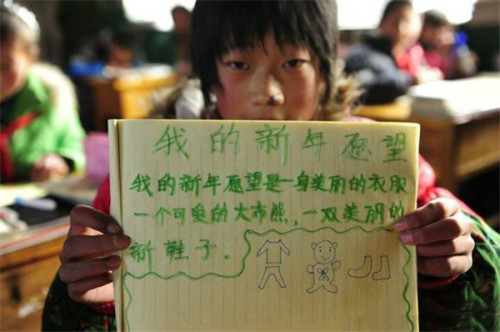 我的新年愿望
我的新年愿望是一身美丽的衣服
一个可爱的大布熊，一双美丽的
新鞋子。